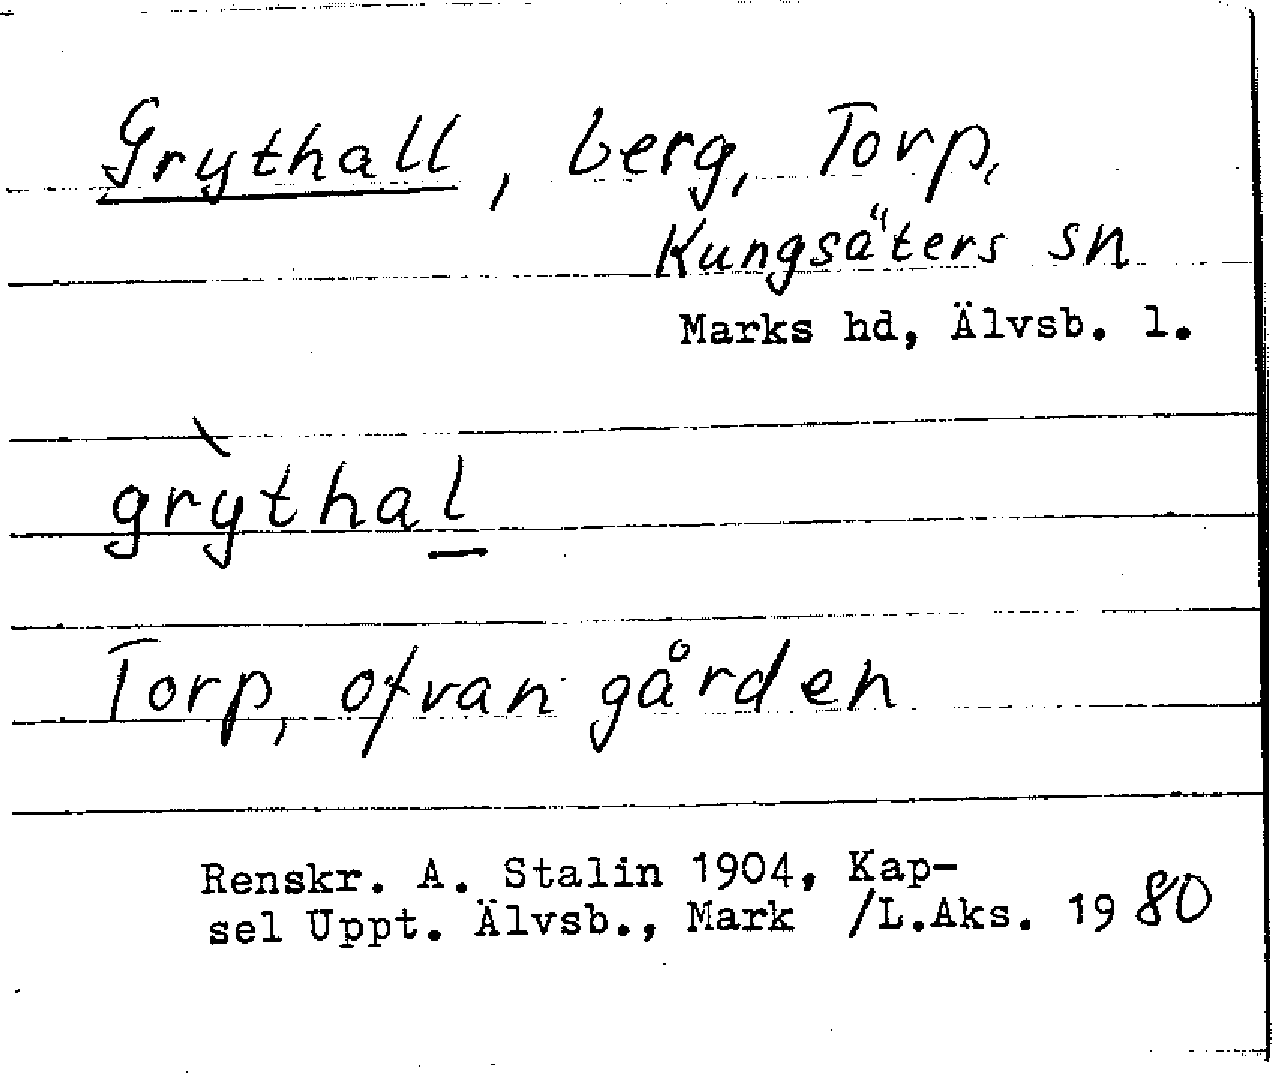 Grythall, berg, Torp,
Kungsäters sn
Marks hd, Älvsb. l.
grỳthal
Torp, ofvan gården
Renskr. A. Stalin 1904, Kap-
sel Uppt. Älvsb., Mark /L.Aks. 1980